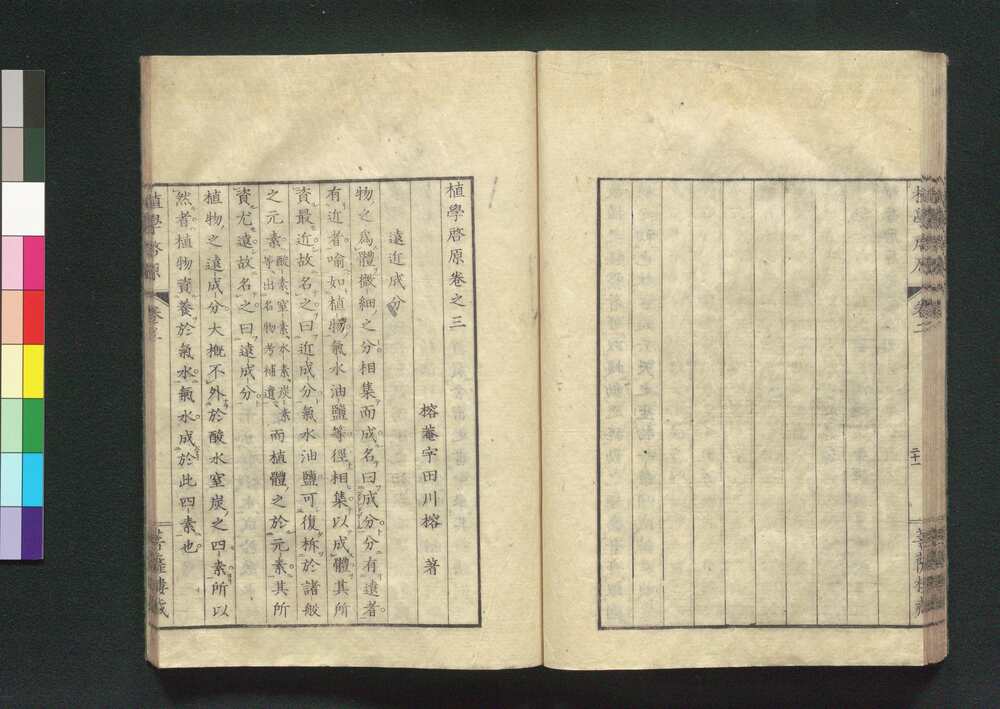 植學啓原
卷之二
二十一
菩薩樓藏
植學啓原卷之三
榕菴宇田川榕 著
遠近成分
物之爲體微細之分相集而成名曰成分分有遠者
有近者喻如植物氣水油鹽等徑相集以成體其所
資最近故名之曰近成分氣水油鹽可復析於諸般
之元素酸素窒素水素炭素等出名物考補遺而植體之於元素其所
資尤遠故名之曰遠成分
植物之遠成分大概不外於酸水窒炭之四素所以
然者植物資養於氣水氣水成於此四素也
植學啓原
卷之三
菩薩樓藏